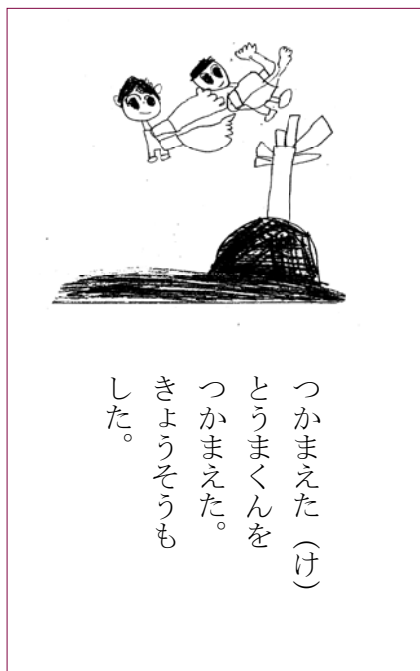 つかまえた（け）
とうまくんを
つかまえた。
きょうそうも
した。